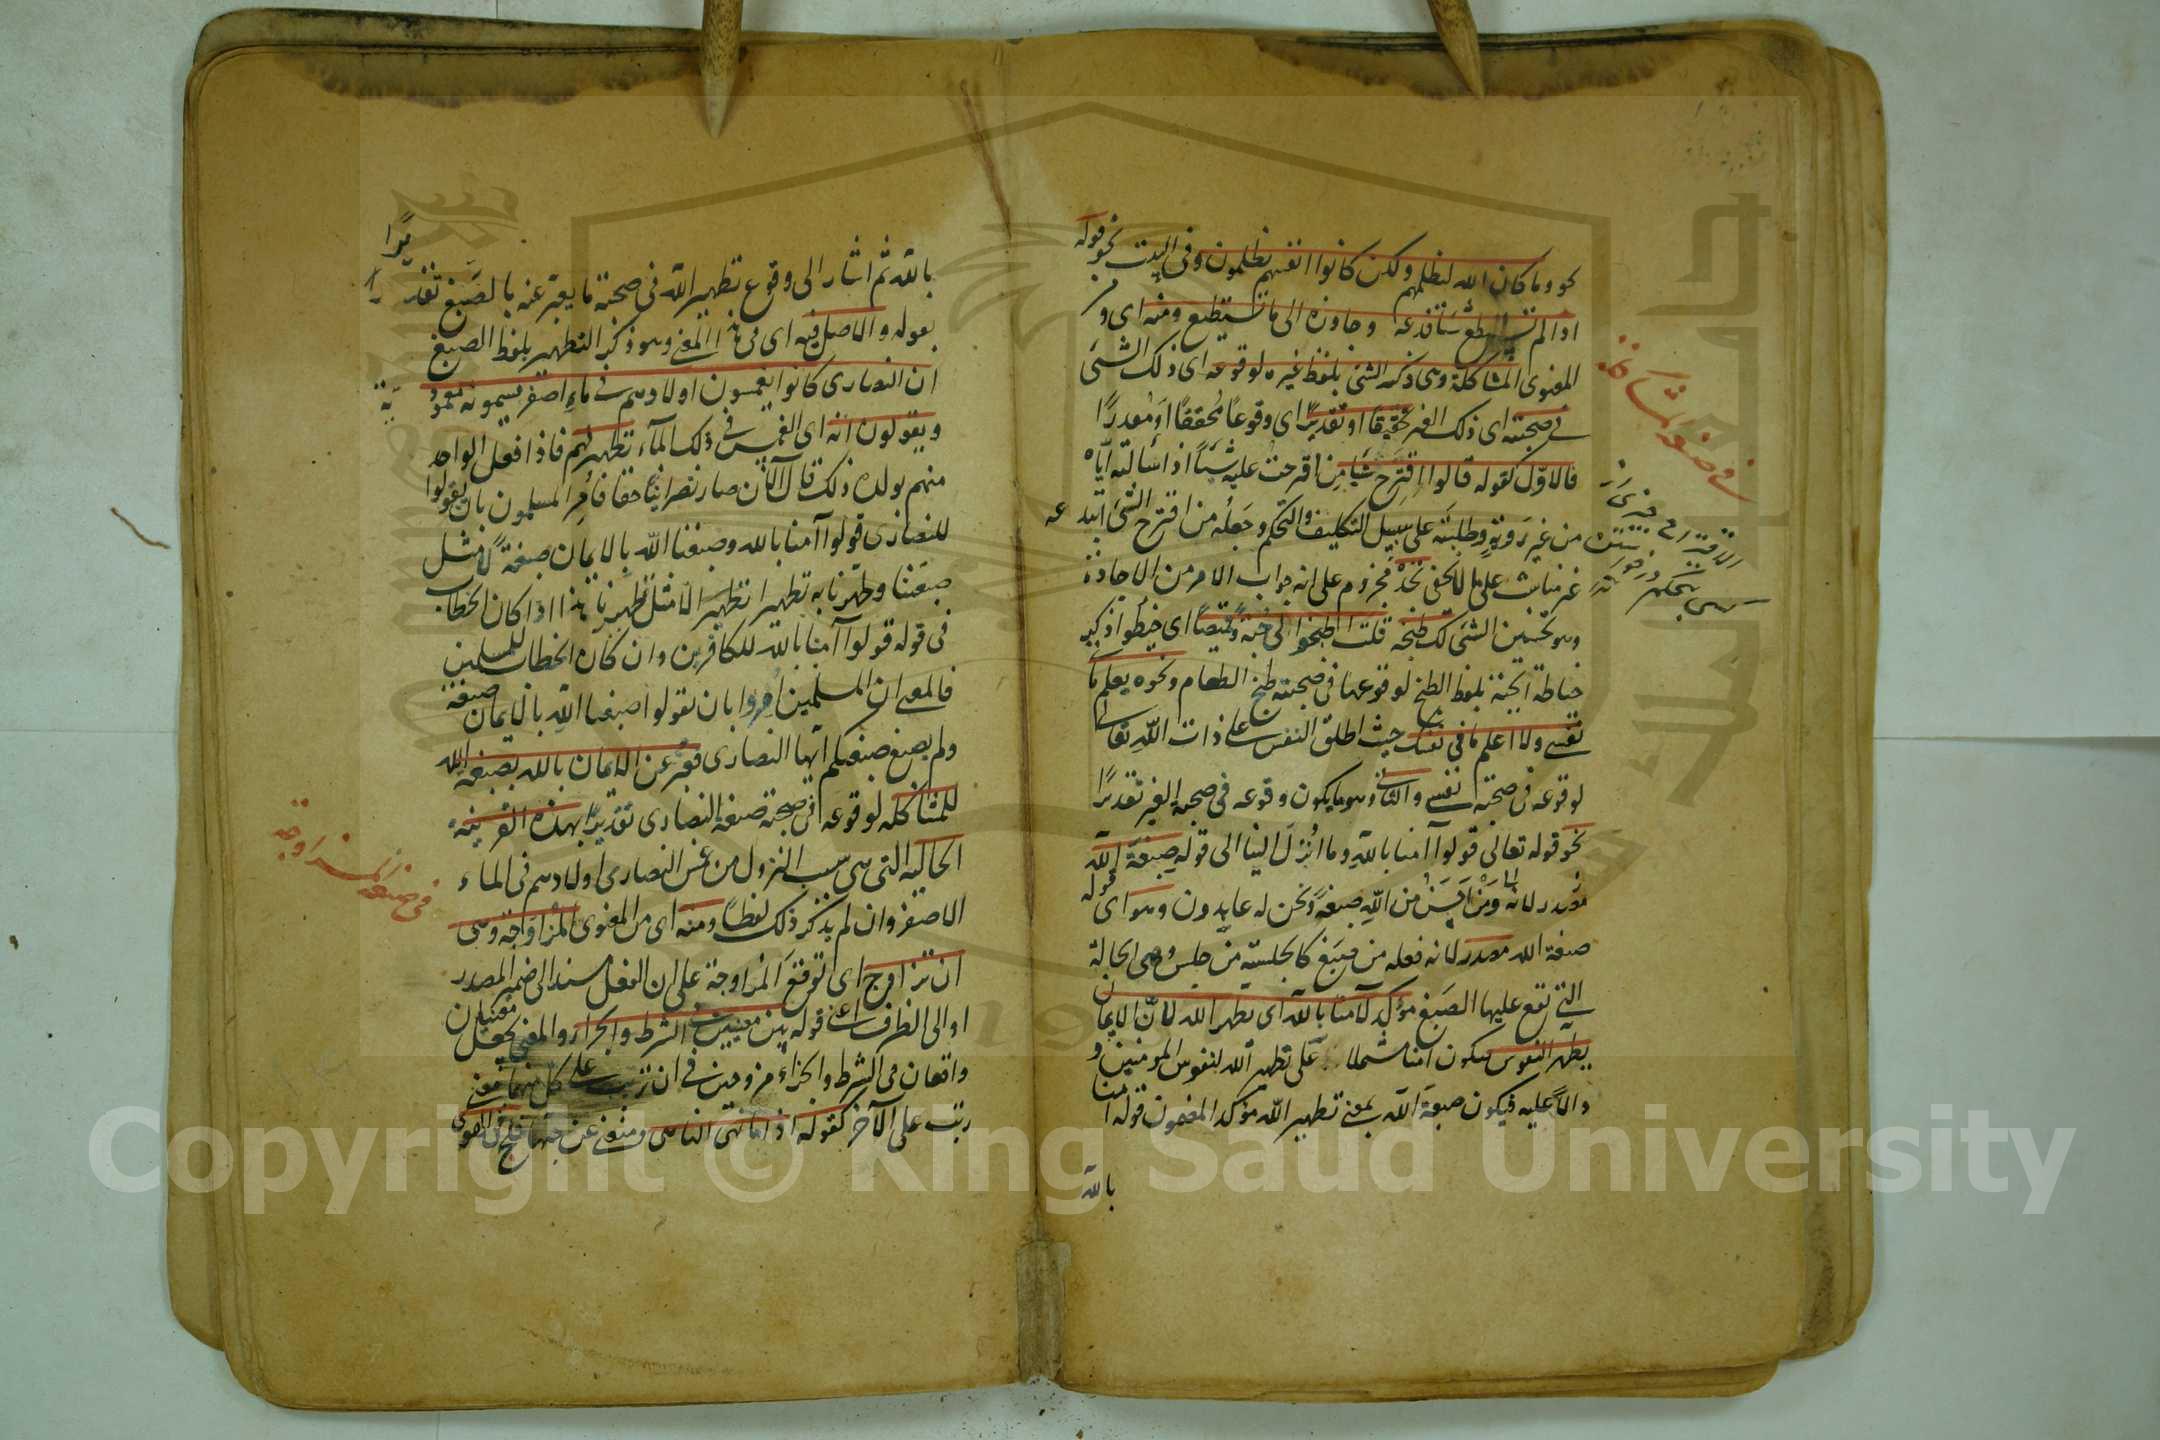 نحو وما كان الله ليظلمهم ولكن كانوا انفسهم يظلمون وفى البيت نحو قوله
اذا لم تستطع شيئا فدعه وجاوزه الى ما تستطيع ومنه اى و من
المعنوى المشاكلة وهى ذكر الشئ بلفظ غيره لوقوعه اى ذلك الشئ
فى صحبته اى ذلك الغير تحقيقا او تقديرًا اى وقوعًا مُحققًا او مُقدرًا
فالاوّل كقوله قالوا اِقتَرِح شيئًا مِن اقترحتُ عليه شيئًا اذا سألته ايّاه
من غير رَويةٍ وطلبتَه على سبيل التكليف والتحكم وجَعلُه من اقترح الشئ ابتدعه
غير مناسب على ما لا يخفى نُجدْ مجزوم على انه جواب الامر من الاجادة
وهو تحسين الشئ لك طبخه قلت اطبخوا لى جُبةً وقميصًا اى خيطوا ذكر
خياطة الجبة بلفظ الطبخ لوقوعها فى صحبته طبخ الطعام ونحوه يعلم ما فى
نفسى ولا اعلم ما فى نفسك حيث اطلق النفس على ذات الله تعالى
لوقوعه فى صحبته نفسى والثانى وهو ما يكون وقوعه فى صحبة الغير تقديرًا
نحو قوله تعالى قولوا آمنا بالله وما اُنزلَ الينا الى قوله صِبغَةَ الله
ومَن اَحسَنُ من الله صبغةً ونحن له عابدون وهو اى قوله
صبغة الله مصدر لانه فعله من صَبَغ كالجلسة من جلس وهى الحالة
التى تقع عليها الصَبغ مؤكد لآمنا بالله اى تطهير الله لانّ الايمان
يطهر النفوس فيكون امنا مشتملا على تطهير الله لنفوس المومنين و
دالاً عليه فيكون صبغة الله بمعنى تطهير الله مؤكد المضمون قوله امنا
بالله
فى صنعة المشاكلة
بالله ثم اشار الى وقوع تطهير الله فى صحبة ما يعبّر عنه بالصَبغ تقديرًا
بقوله والاصل فيه اى فى هذا المعنى وهو ذكر التطهير بلفظ الصبغ
ان النصارى كانوا يغمسون اولادهم فى ماءٍ اصفر يسمونه معمودية
ويقولون انه اى الغمس فى ذلك الماء تطهير لهم فاذا فعل الواحد
منهم بولده ذلك قال الآن صار نصرانيًّا حقا فاُمِر المسلمون بان يقولوا
للنصارى قولوا آمنا بالله وصبغنا الله بالايمان صبغةً لا مثل
صبغتنا وطهّرنا به تطهيرا لا مثل تطهيرنا هذا اذا كان الخطاب
فى قوله قولوا آمنا بالله للكافرين وان كان الخطاب للمسلمين
فالمعنى ان المسلمين اُمِروا بان يقولوا صبغنا الله بالايمان صبغة
ولم يصبغ صبغتكم ايّها النصارى فعُبّر عن الايمان بالله بصبغة الله
للمشاكله لوقوعه فى صحبة صبغة النصارى تقديرًا بهذه القرينة
الحالية التى هى سبب النزول من غمس النصارى اولادهم فى الماء
الاصفر وان لم يذكر ذلك لفظًا ومنه اى من المعنوى المُزاوَجة وهى
ان تزاوج اى توقع المُزاوجة على ان الفعل مسند الى ضمير المصدر
او الى الظرف اعنى قوله بين معنيين فى الشرط والجزاء والمعنى يجعل معنيان
واقعان فى الشرط والجزاء مزدوجين فى ان ترتب على كل منهما معنى
رتب على الآخر كقوله اذا ما نهى الناهى ومنعنى عن حبها فلج فى الهوى
فى صنعة المزاوجة